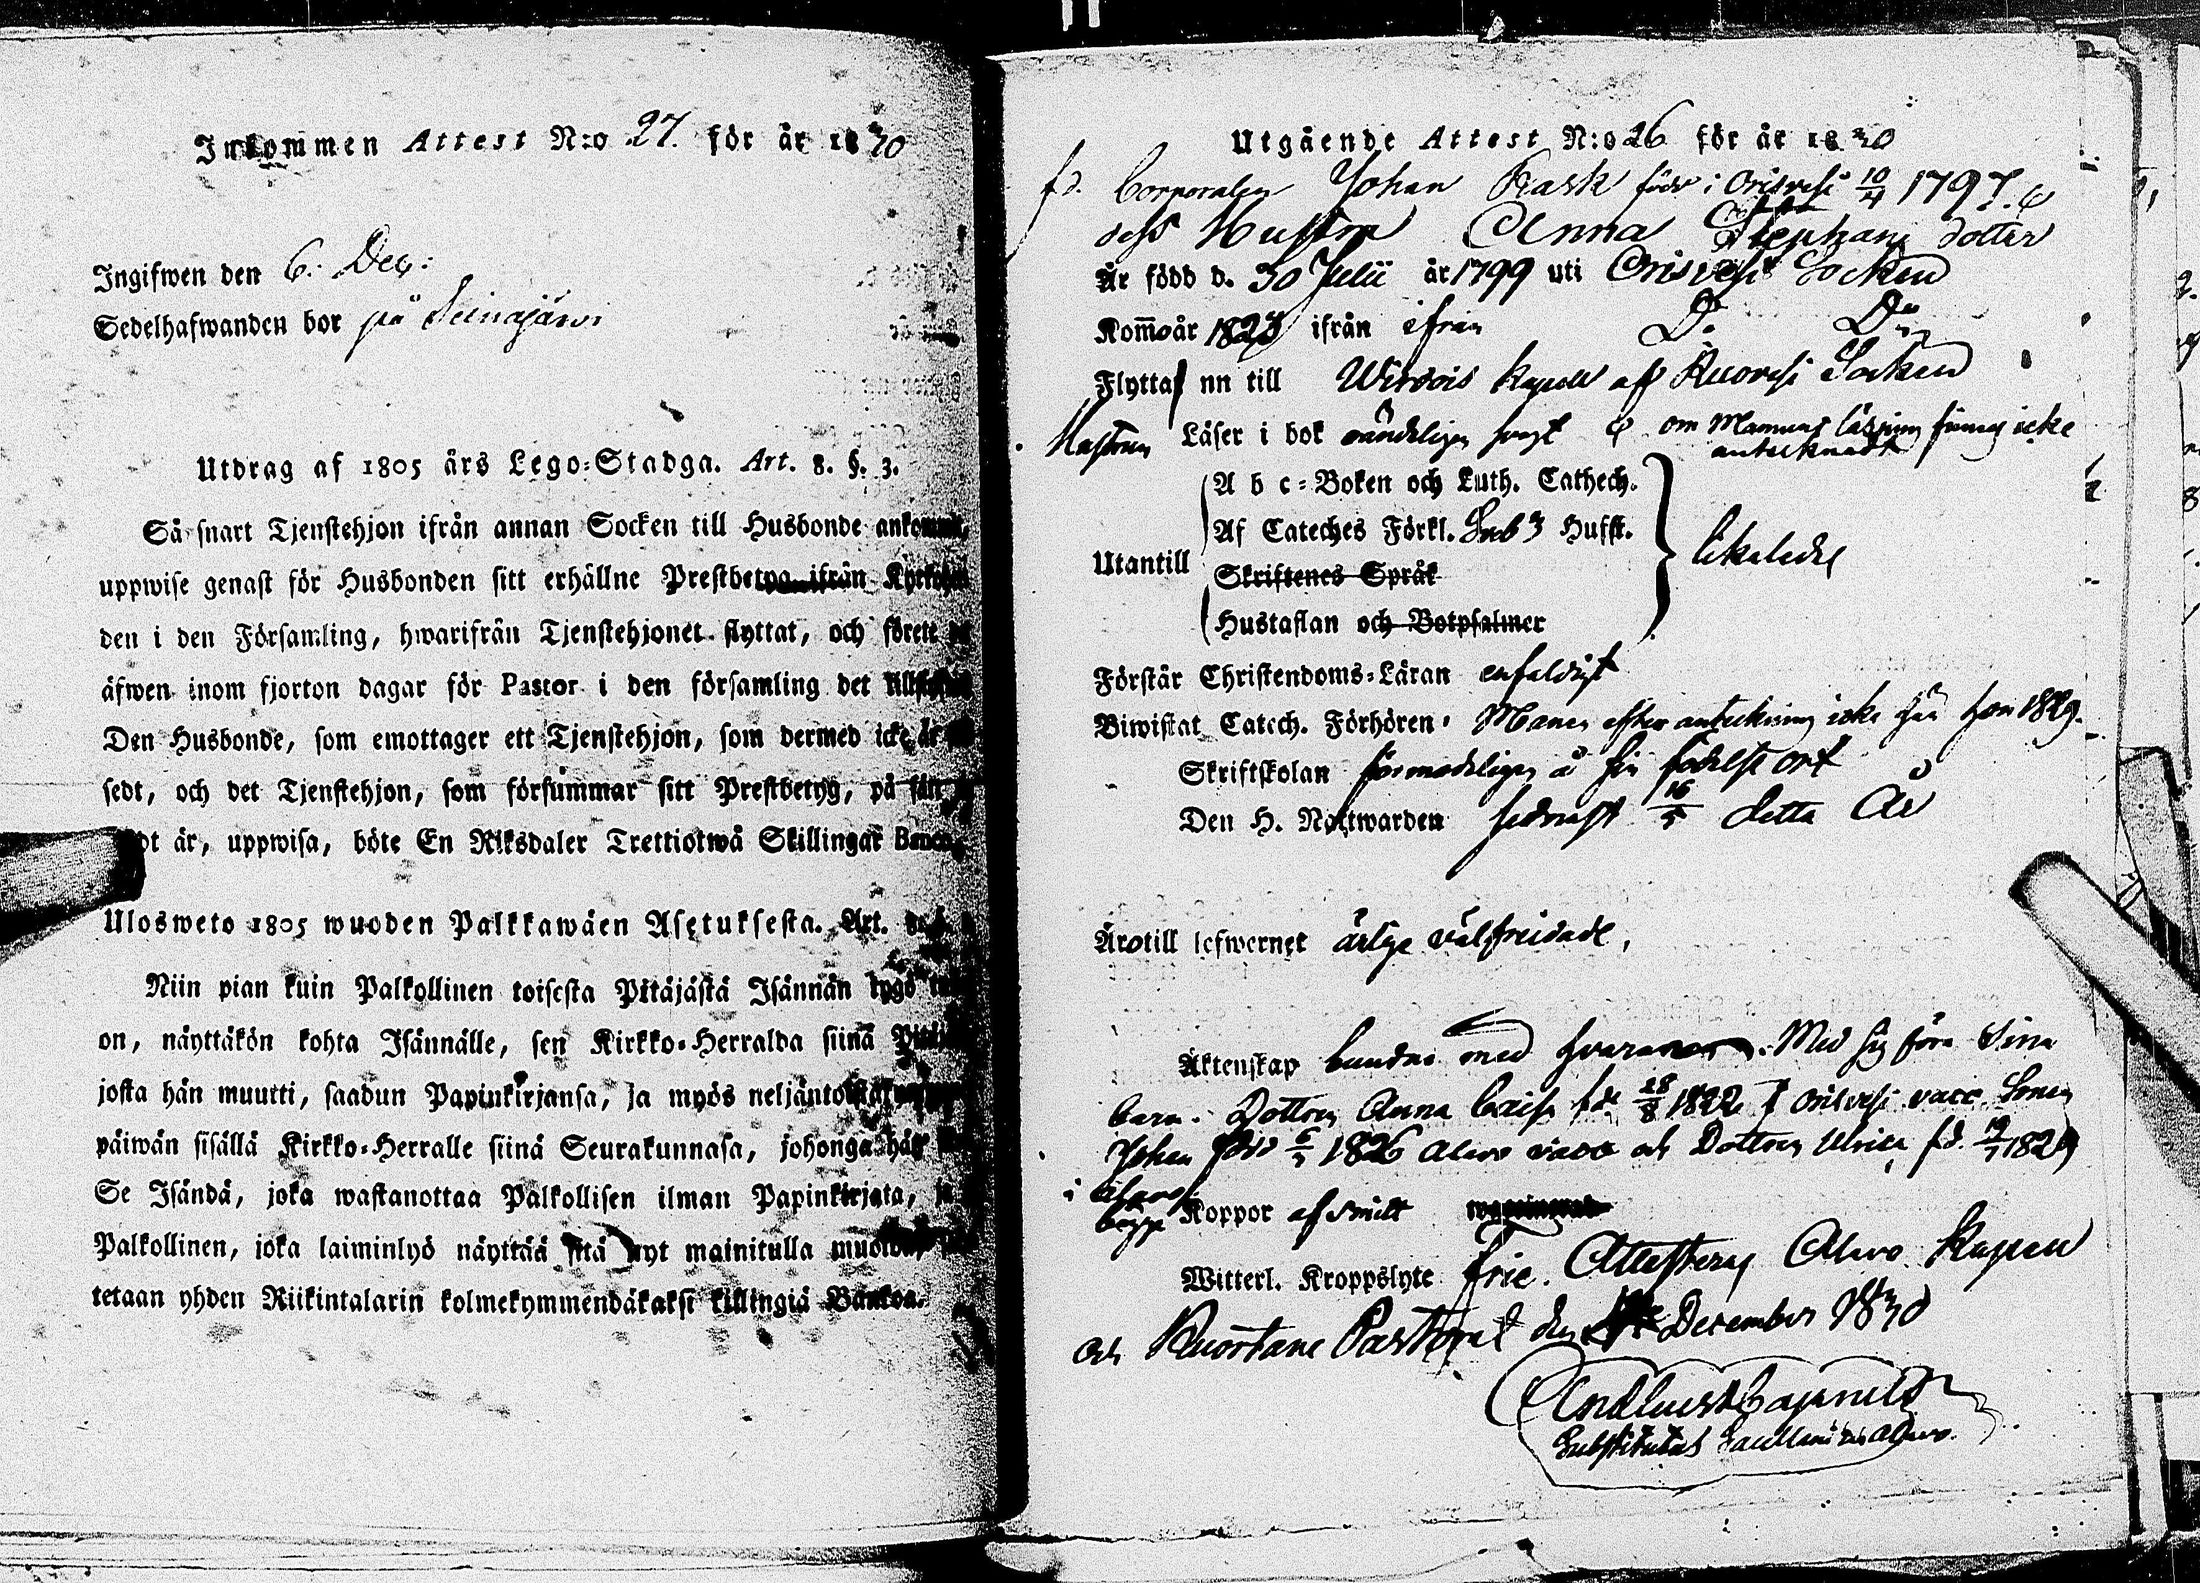 Inkommen Attest N:o 27. för år 1830
Ingifwen den 6. Dec:
Sedelhafwanden bor på Seinäjärvi
Utdrag af 1805 års Lego-Stadga. Art. 8. §. 3.
Så snart Tjenstehjon ifrån annan Socken till Husbonde ankommit,
uppwise genast för Husbonden sitt erhållne Prestbetyg ifrån
den i den Församling, hwarifrån Tjenstehjonet flyttat, och förete
äfwen inom fjorton dagar för Pastor i den församling det
Den Husbonde, som emottager ett Tjenstehjon, som dermed icke är
sedt, och det Tjenstehjon, som försummar sitt Prestbetyg, på sätt
är, uppwisa, böte En Riksdaler Trettiotwå Skillingar Banco.
Ulosweto 1805 wuoden Palkkawäen Asetuksesta. Art. 8.
Niin pian kuin Palkollinen toisesta Pitäjästä Isännän tygö
on, näyttäkön kohta Isännälle, sen Kirkko-Herralda siinä
josta hän muutti, saadun Papinkirjansa, ja myös
päiwän sisällä Kirkko-Herralle siinä Seurakunnasa, johonga hän
Se Isändä, joka wastanottaa Palkollisen ilman Papinkirjata, ja
Palkollinen, joka laiminlyö näyttää sitä nyt mainitulla
tetaan yhden Riikintalarin kolmekymmendäkaksi killingiä Bankoa.
Utgående Attest N:o 26 för år 1830
f.d. Corporalen Johan Rask född i Orisvesi 10/4 1797. &
dess Hustru Anna Stephans dotter
Är född d. 30 Julii år 1799 uti Orisvesi Socken
Kom̄o år 1823 ifrån ifrån Do Do
Flytta nu till Wirdois Kapell af Ruovesi Socken
Hustrun Läser i bok svagt & om Mannens läsning finnes icke
antecknadt
Utantill
A b c-Boken och Luth. Cathech.
Af Cateches Förkl. 3 Hufst.
Skriftenes Språk
Hustaflan och Botpsalmer
likaledes
Förstår Christendoms-Läran enfaldigt
Biwistat Catech. Förhören. Mannen efter anteckning icke hon 1829.
Skriftskolan förmodeligen å sin födelse ort
Den H. Nattwarden sednast 16/5 detta År
Äro till lefwernet ärlige välfreidade,
Äktenskap bundne med hvarannan. Med sig föra sina
barn. Dottren Anna Caisa fd. 28/8 1822 i Orisvesi vacc. Sonen
Johan född 6/5 1826 Alavo vacc och Dottren Ulrica fd. 19/7 1829
i Alavo
bägge Koppor af smitt
Witterl. Kroppslyte frie. Attesteras Alavo Kapell
och Kuortane Pastorat den December 1830
Substitutus Sacellani in Alavo.